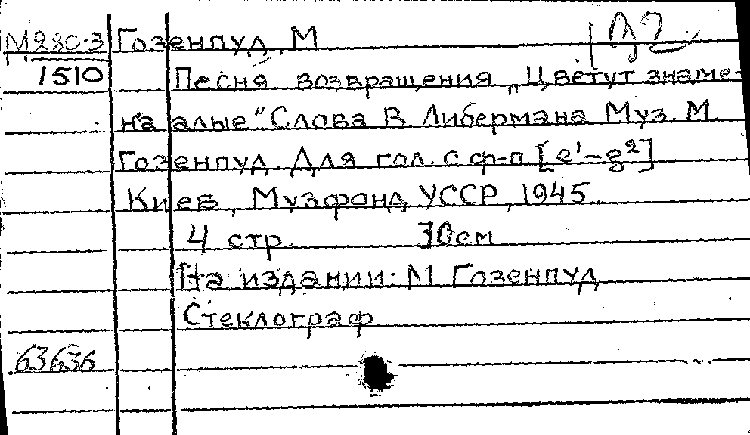 М280-3 Гозенпуд, М
1510 Песня возвращения „Цветут знаме-
на алые" Слова В. Либермана Муз. М.
Гозенпуд. Для гол. с ф-п [e¹-g²]
Киев, Музфонд УССР, 1945
4 стр. 30см
На издании: М Гозенпуд
Стеклограф
63636